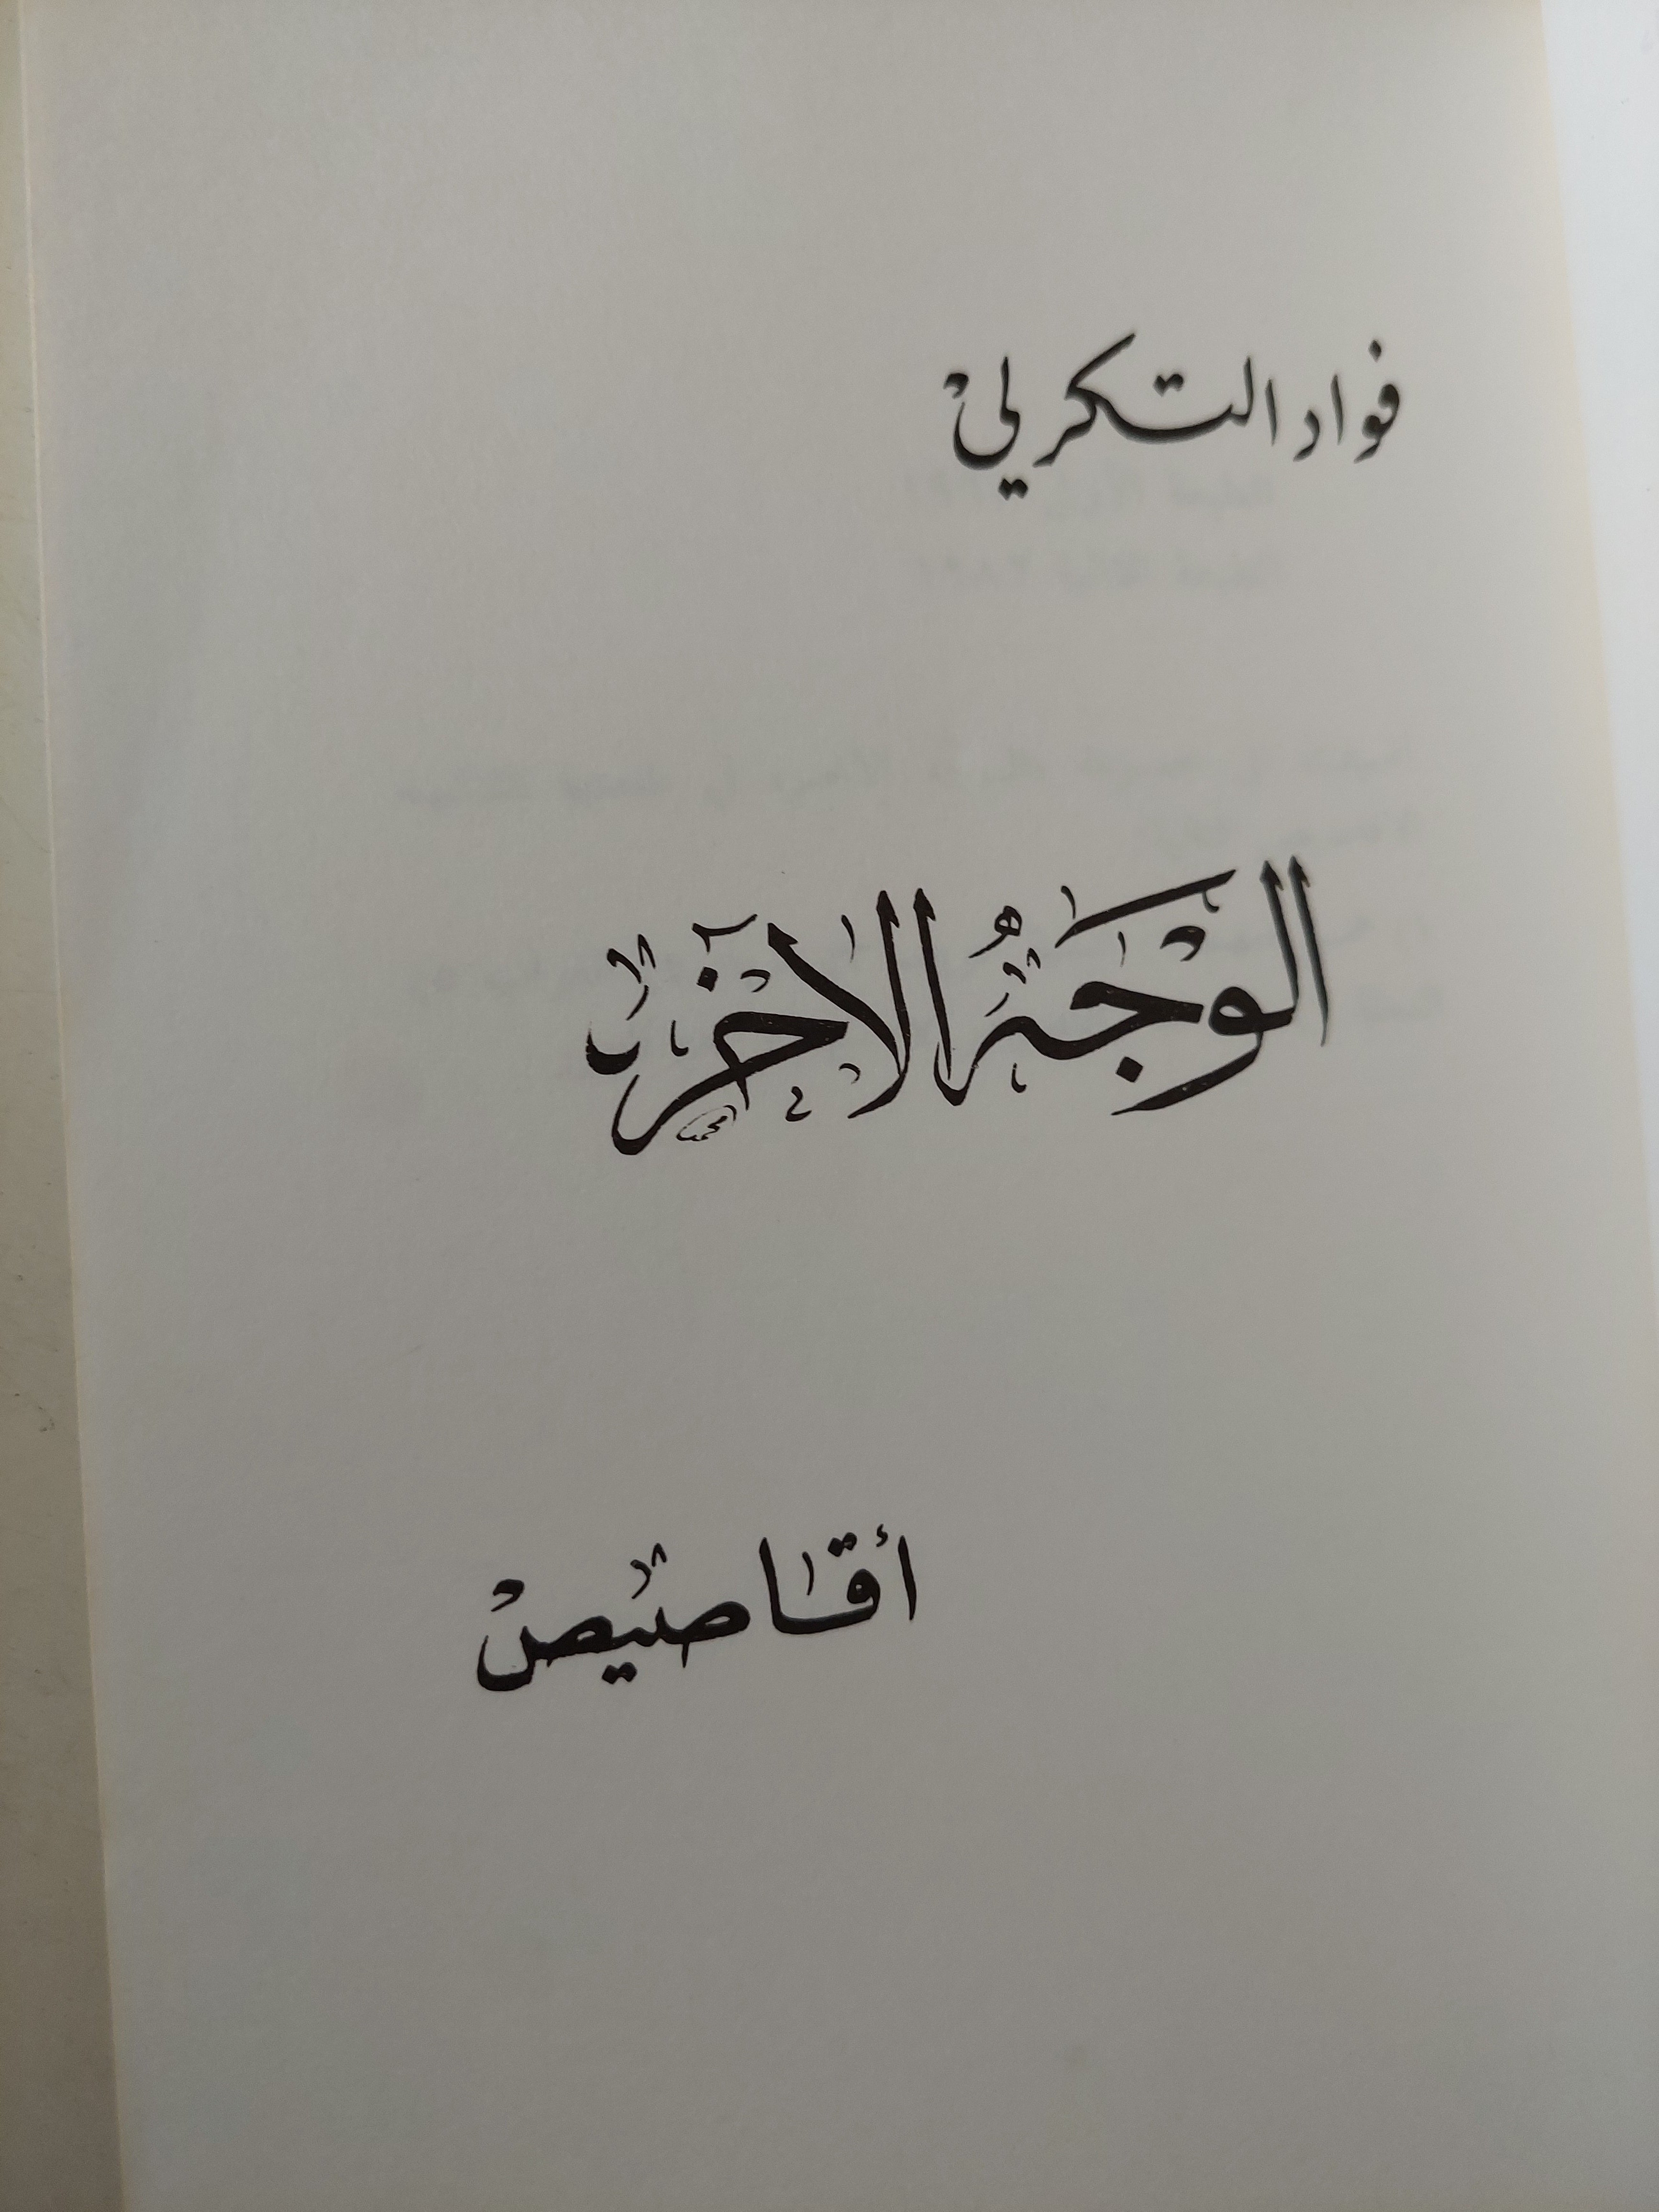 فواد التكرلي
الوجه الآخر
أقاصيص